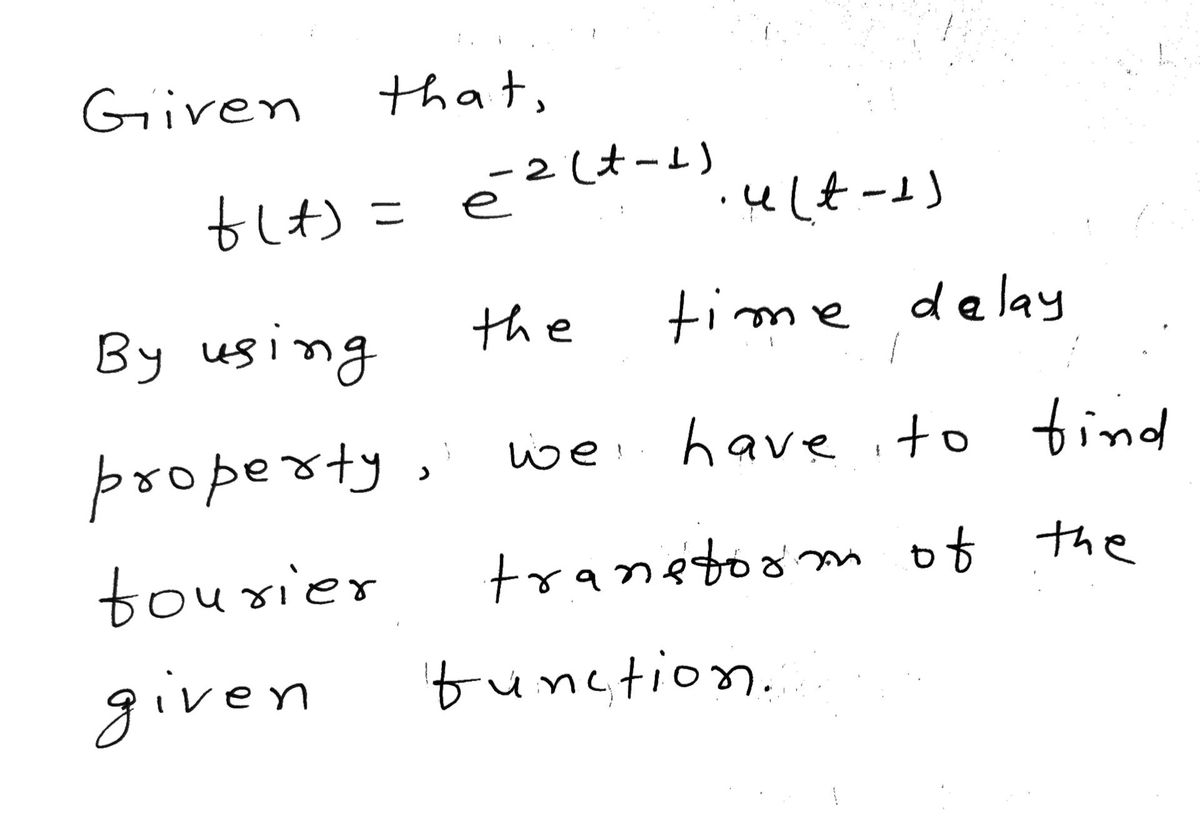 Given that,
f(t) = e^-2(t-1) . u(t-1)
By using the time delay
property, we have to find
fourier transform of the
given function.